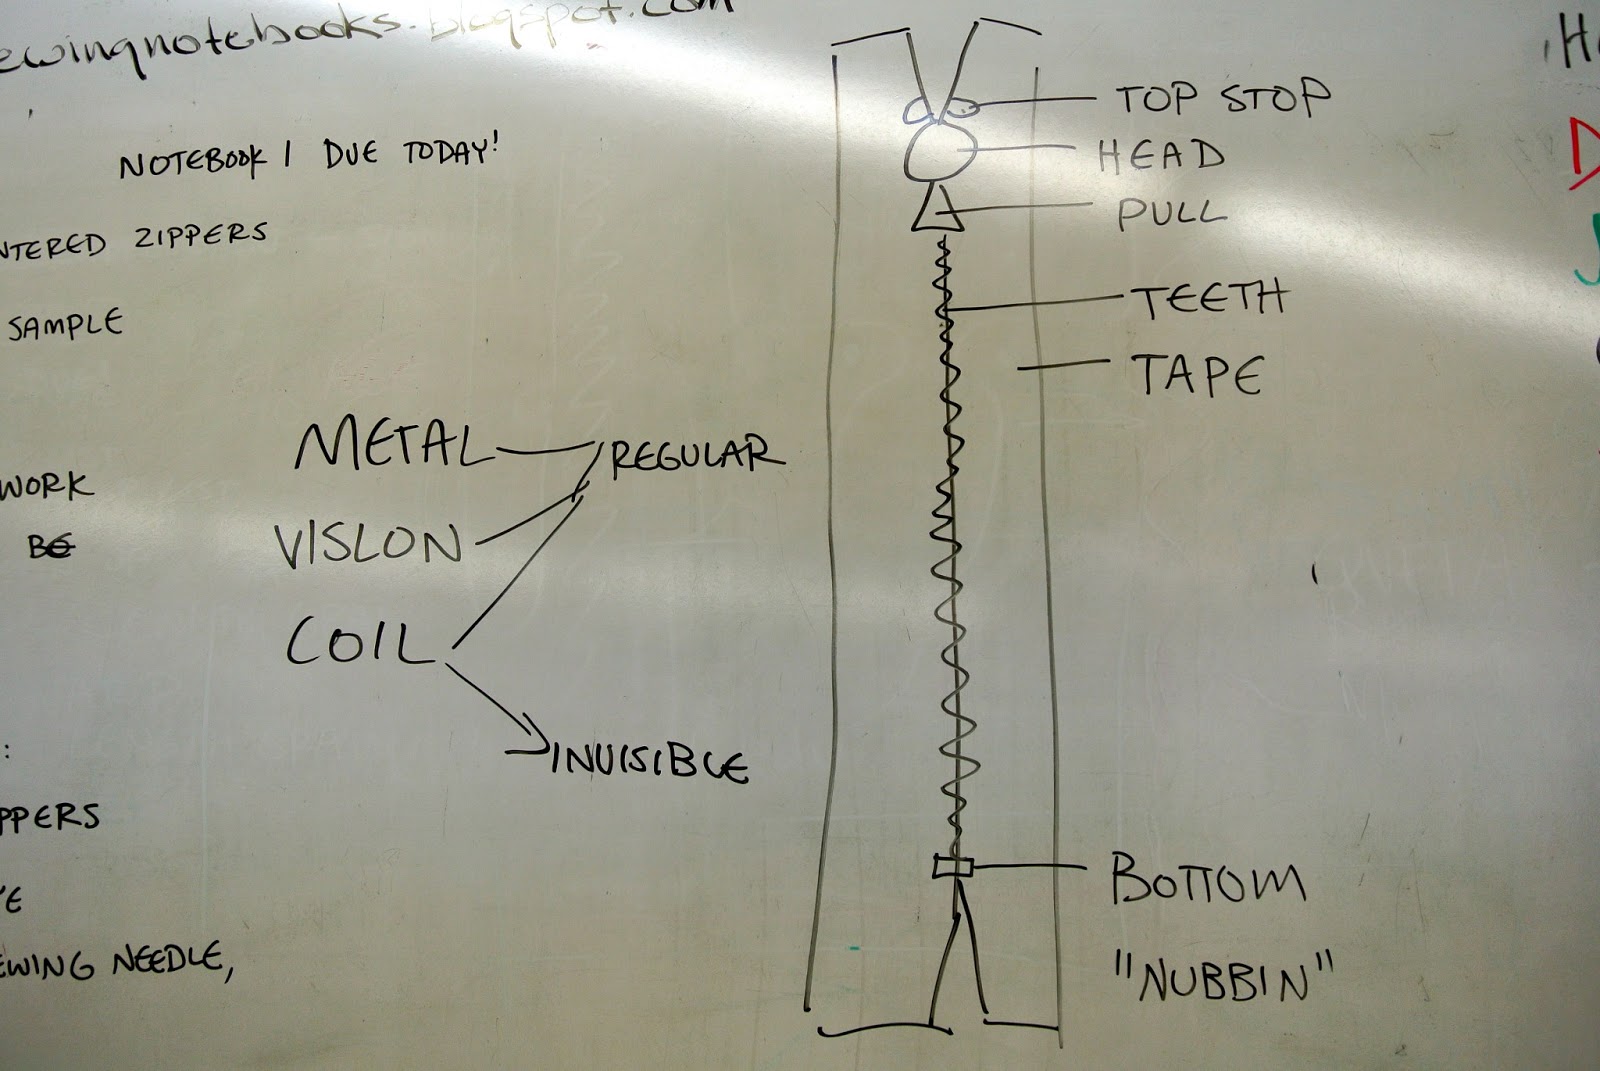 ewingnotebooks.blogspot.com
NOTEBOOK 1 DUE TODAY!
NTERED ZIPPERS
SAMPLE
WORK
BE
:
PPERS
E
EWING NEEDLE,
METAL
REGULAR
VISLON
COIL
INVISIBLE
TOP STOP
HEAD
PULL
TEETH
TAPE
BOTTOM
"NUBBIN"
H
D